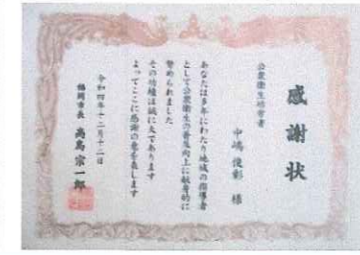 感謝状
公衆衛生功労者
中嶋俊彰 様
あなたは多年にわたり地域の指導者
として公衆衛生の普及向上に献身的に
努められました
その功績は誠に大であります
よってここに感謝の意を表します
令和四年十二月十二日
福岡市長 高島宗一郎